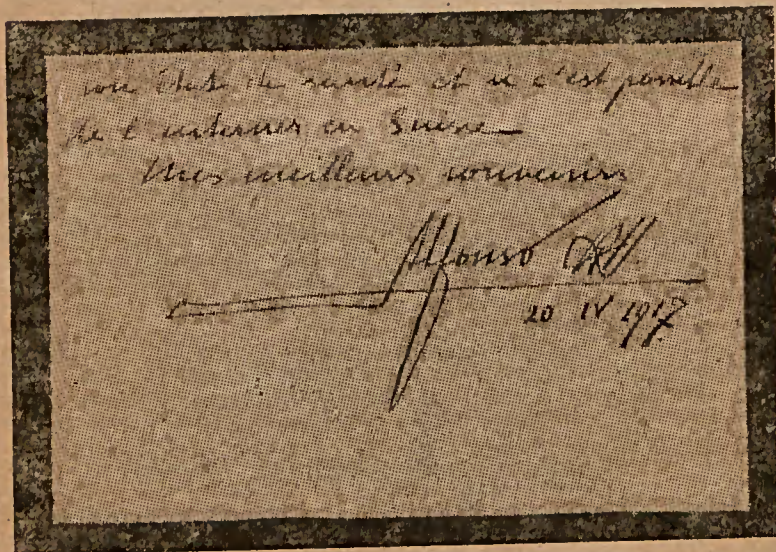 son État de santé et si c'est possible
de l'interner en Suisse
Mes meilleurs souvenirs
Alfonso
20 IV 1917